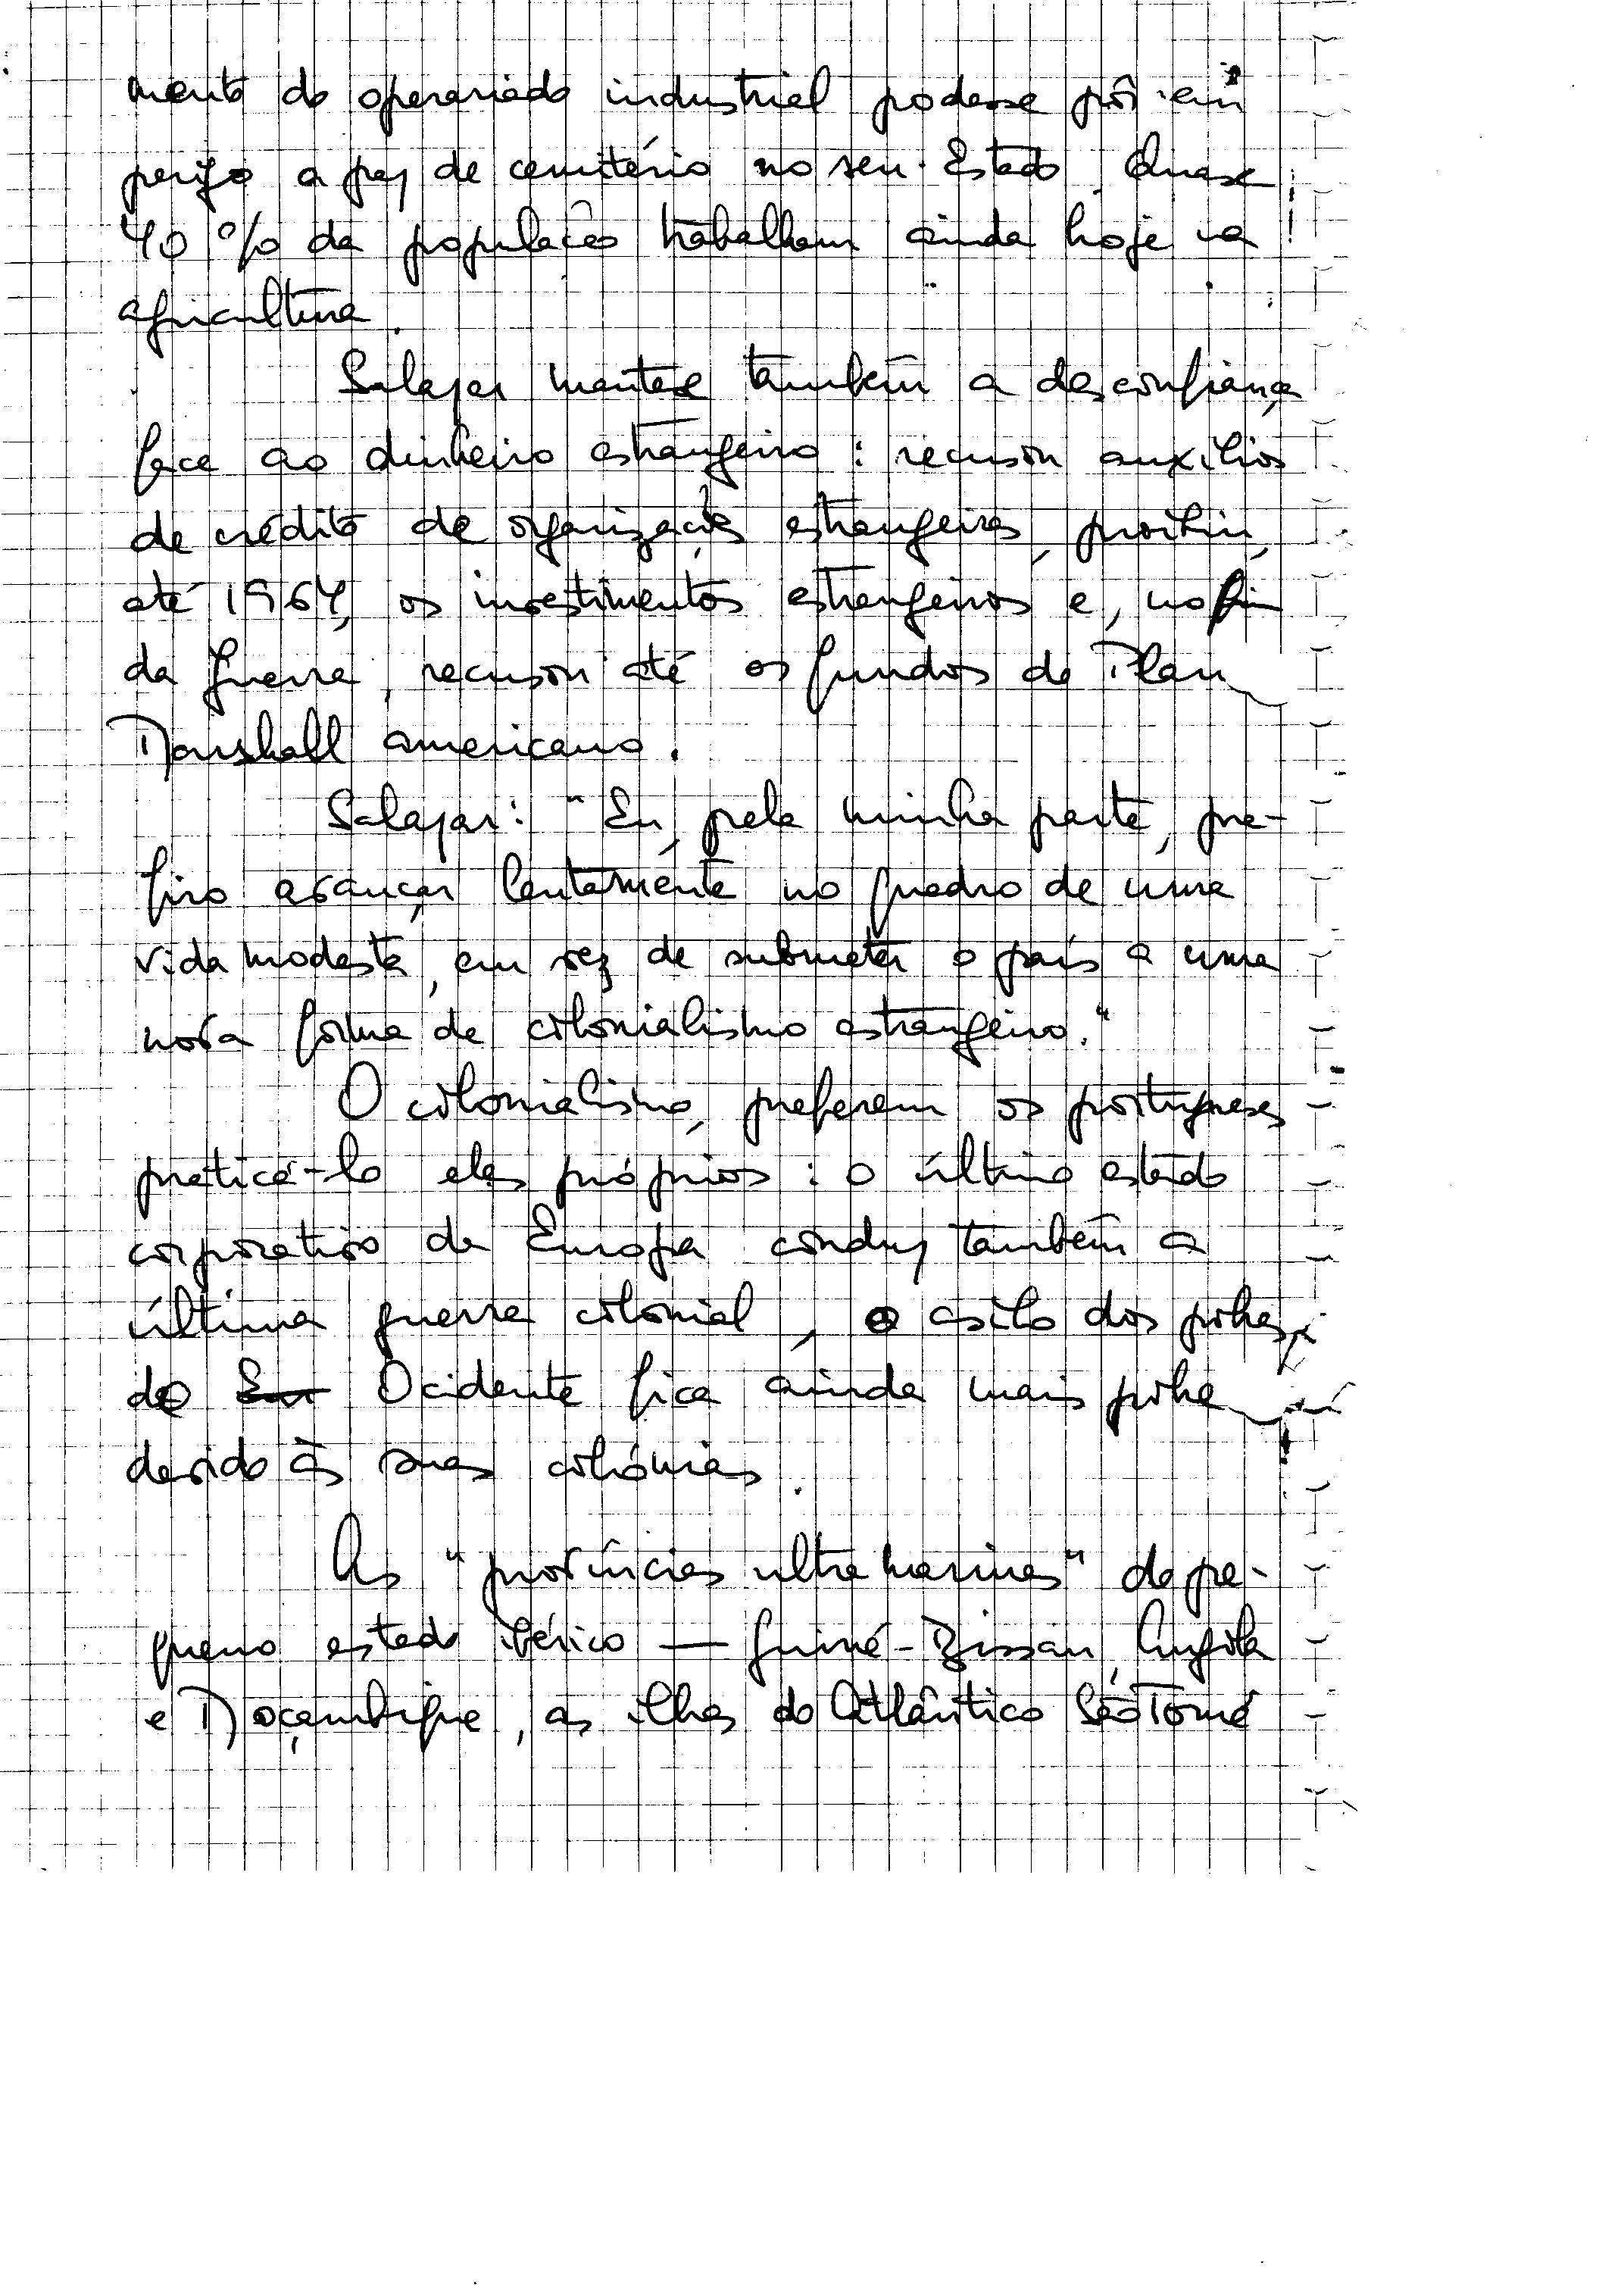 mento do operariado industrial podesse pôr em
perigo a paz de cemitério no seu Estado. Quase
40 % da população trabalham ainda hoje na
agricultura.
Salazar manteve também a desconfiança
face ao dinheiro estrangeiro : recusou auxílios
de crédito de organizações estrangeiras, proibiu,
até 1964, os investimentos estrangeiros e, no fim
da guerra, recusou até os fundos do Plan
Marshall americano.
Salazar: "Eu, pela minha parte, pre-
firo avançar lentamente no quadro de uma
vida modesta, em vez de submeter o país a uma
nova forma de colonialismo estrangeiro."
O colonialismo, preferem os portugueses
praticá-lo eles próprios : o último estado
corporativo da Europa conduz também a
última guerra colonial, o asilo dos pobres
do Ocidente fica ainda mais pobre
devido às suas colónias.
As "províncias ultramarinas" do pe-
queno estado ibérico — Guiné-Bissau, Angola
e Moçambique, as ilhas do Atlântico São Tomé